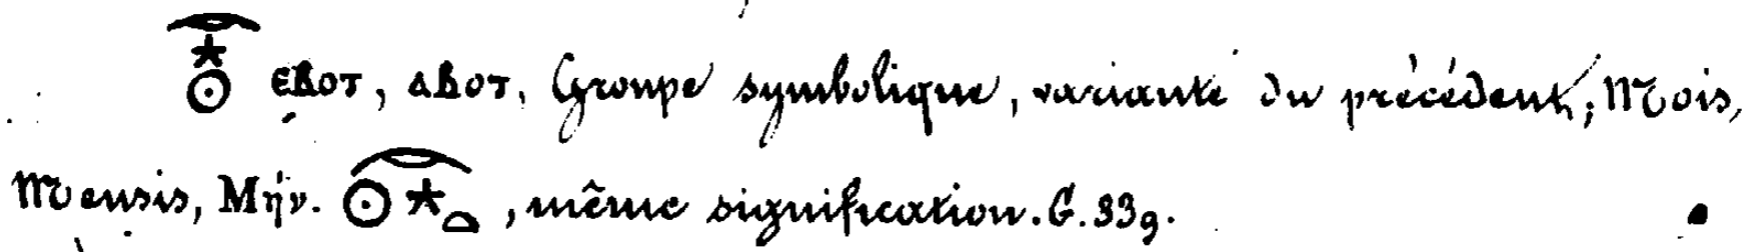 𓇹𓇼𓇳 ⲉⲃⲟⲧ, ⲁⲃⲟⲧ, Groupe symbolique, variante du précédent; Mois,
Mensis, Μήν. 𓇹𓇳𓇼𓏏, même signification. G. 339.